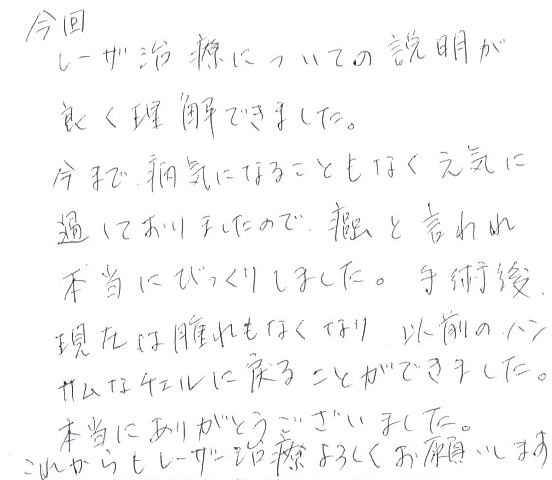 今回
レーザ治療についての説明が
良く理解できました。
今まで、病気になることもなく元気に
過しておりましたので、癌と言われ
本当にびっくりしました。手術後、
現在は腫れもなくなり 以前のハン
サムなチェルに戻ることができました。
本当にありがとうございました。
これからもレーザー治療よろしくお願いします